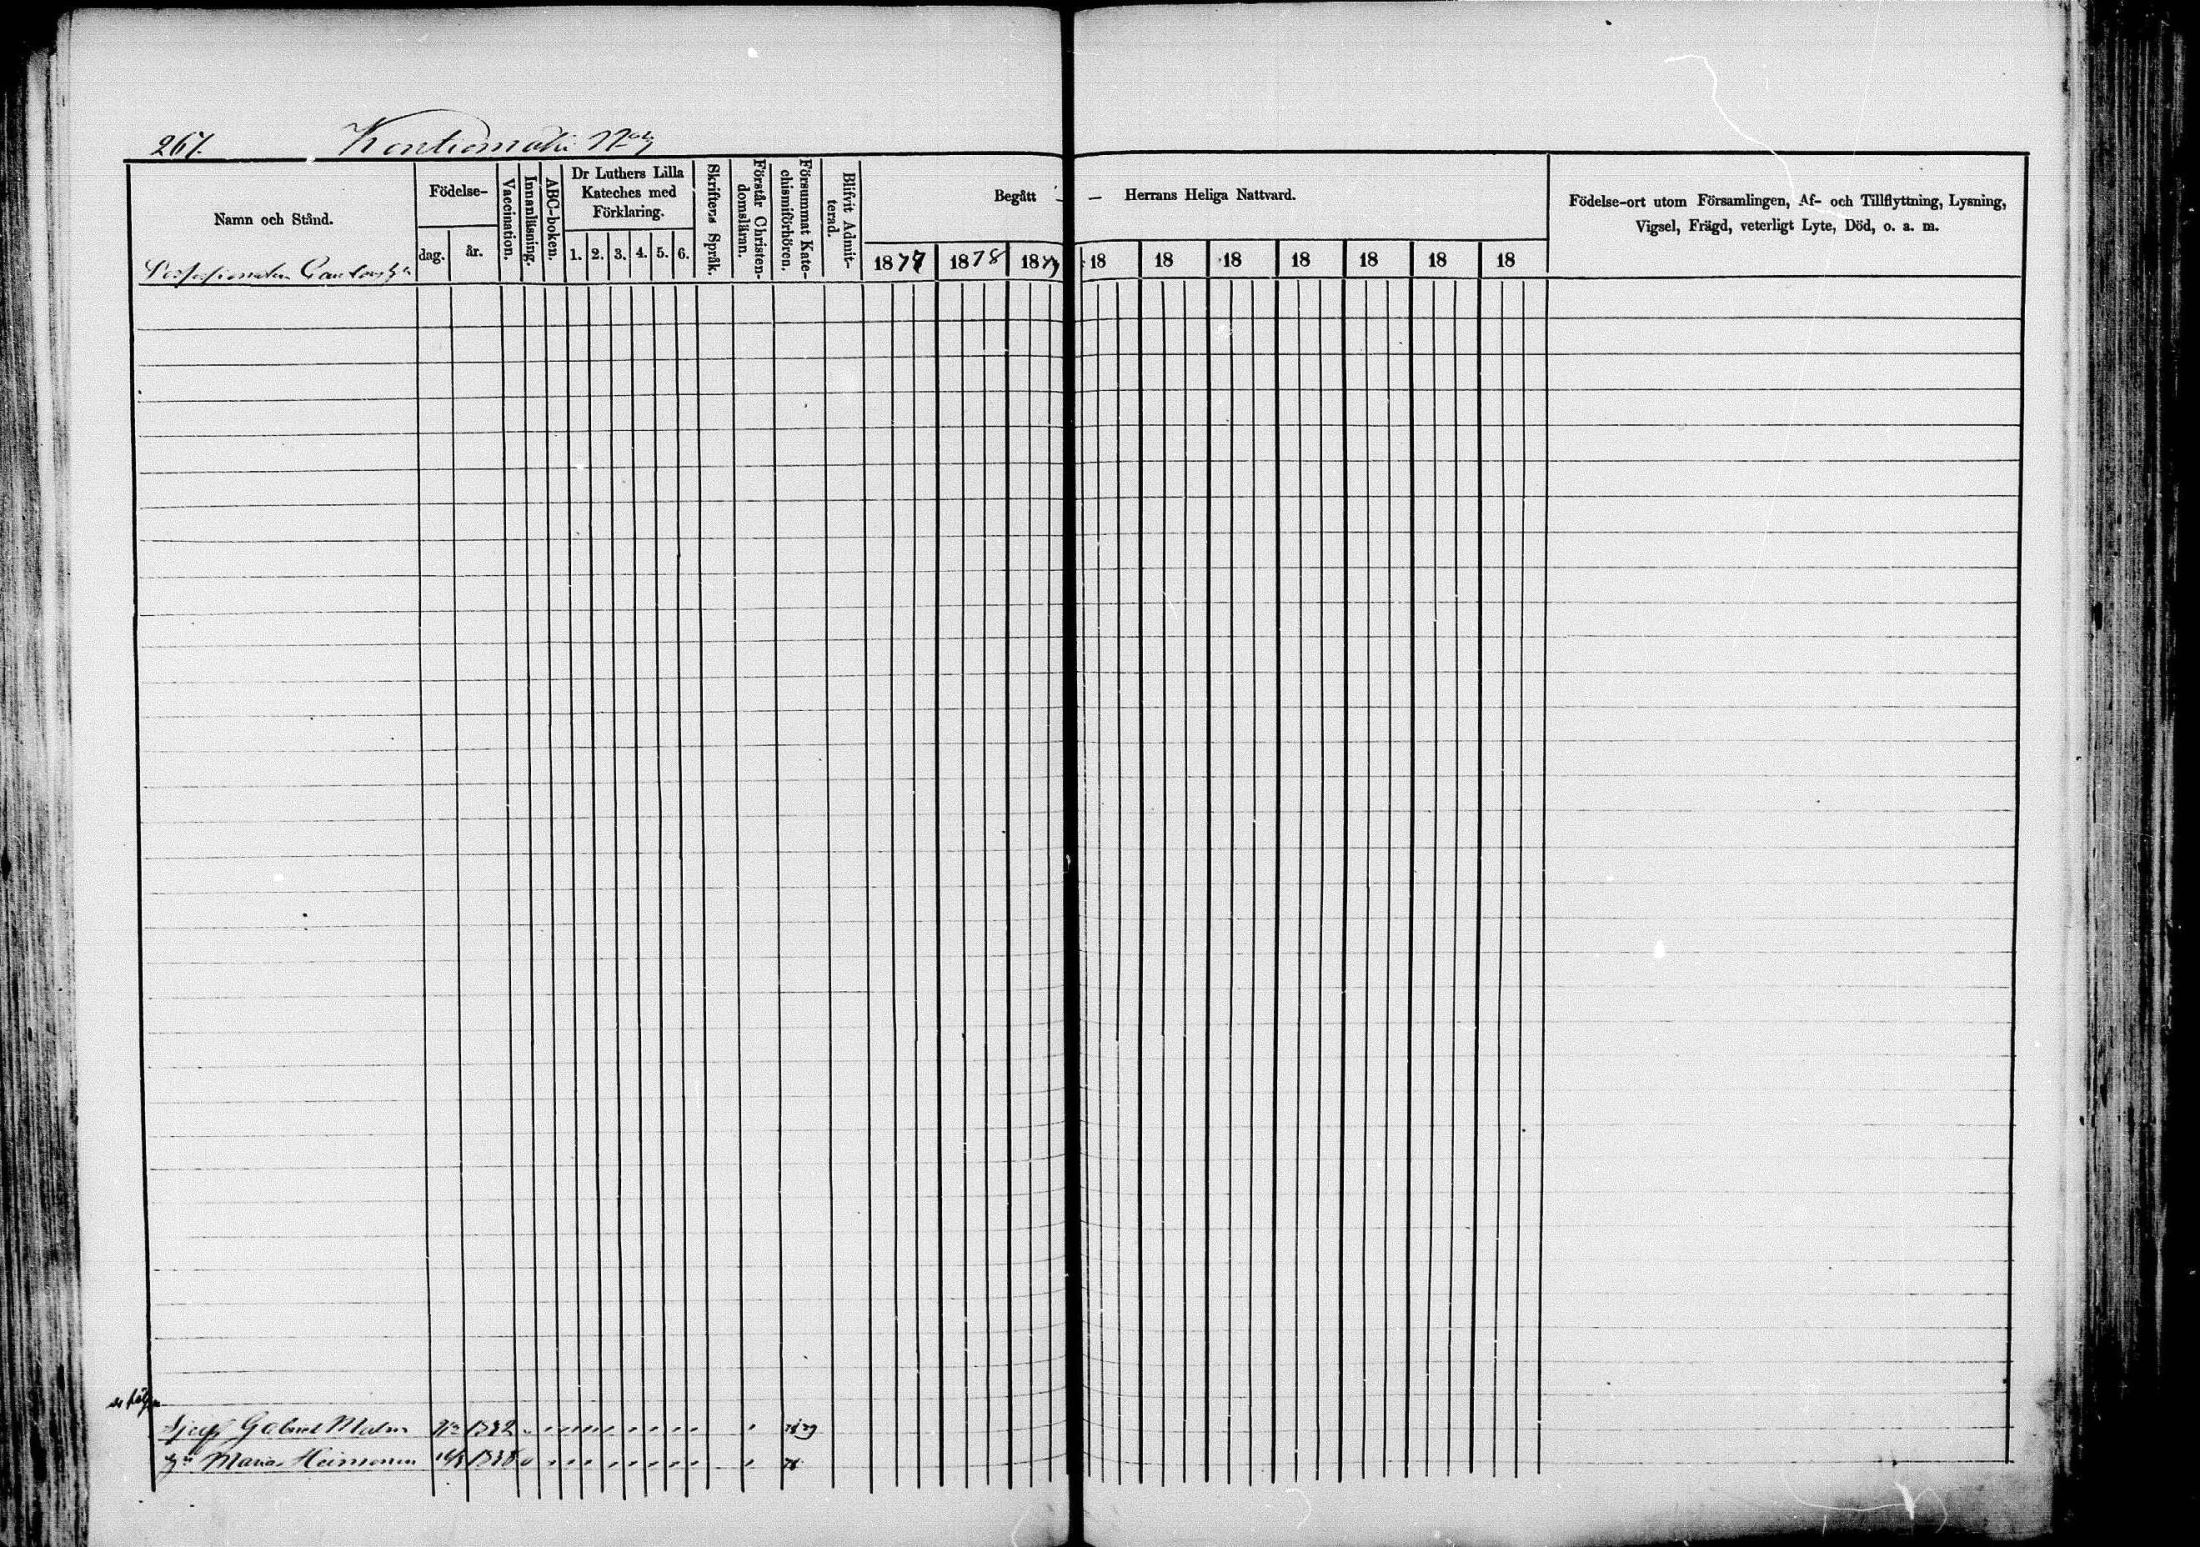 267.
Kontiomäki No 4
Namn och Stånd.
Födelse-
dag.
år.
Vaccination.
Innanläsning.
ABC-boken.
Dr Luthers Lilla
Kateches med
Förklaring.
1. 2. 3. 4. 5. 6.
Skriftens Språk.
Förstår Christen-
domsläran.
Försummat Kate-
chismiförhören.
Blifvit Admit-
terad.
Begått — Herrans Heliga Nattvard.
1877 1878 1879 18 18 18 18 18 18 18
Födelse-ort utom Församlingen, Af- och Tillflyttning, Lysning,
Vigsel, Frägd, veterligt Lyte, Död, o. a. m.
Gabriel
Maria Heimonen